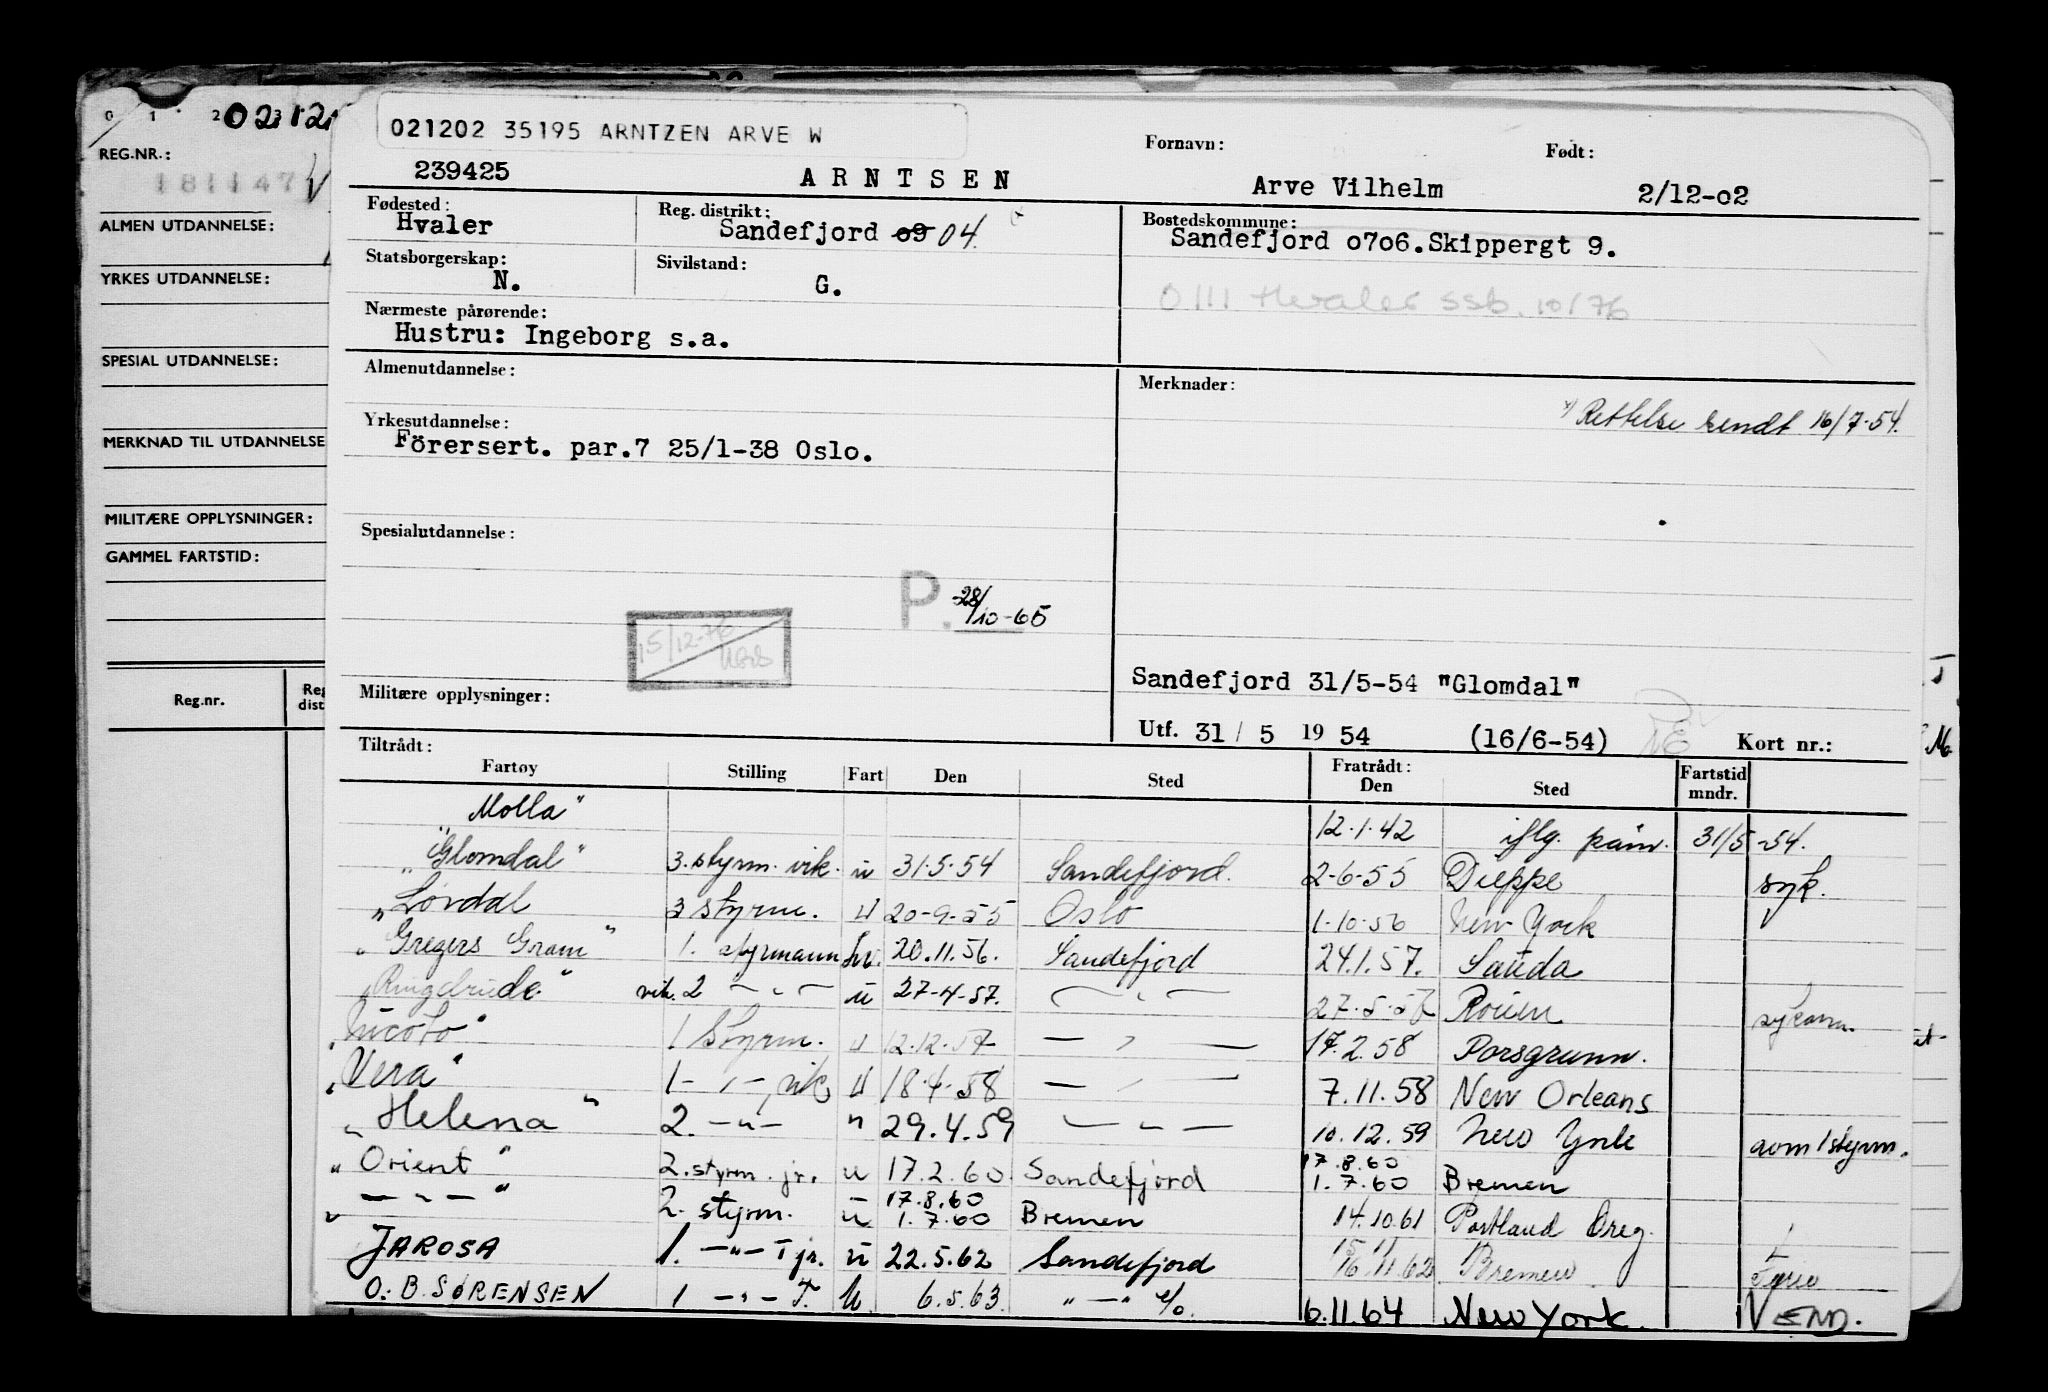 0 1 2 3
02 12
REG.NR.:
181147
ALMEN UTDANNELSE:
YRKES UTDANNELSE:
SPESIAL UTDANNELSE:
MERKNAD TIL UTDANNELSE
MILITÆRE OPPLYSNINGER:
GAMMEL FARTSTID:
Reg.nr. Reg dist
021202 35195 ARNTZEN ARVE W
Fornavn: Født:
239425 ARNTSEN Arve Vilhelm 2/12-02
Fødested: Reg. distrikt: Bostedskommune:
Hvaler Sandefjord 09 04. Sandefjord 0706.Skippergt 9.
Statsborgerskap: Sivilstand:
N. G.
0111 Hvaler ssb. 10/76
Nærmeste pårørende:
Hustru: Ingeborg s.a.
Almenutdannelse: Merknader:
x) Rettelse sendt 16/7-54.
Yrkesutdannelse:
Förersert. par.7 25/1-38 Oslo.
Spesialutdannelse:
P. 28/10-65
15/12-76
Sandefjord 31/5-54 "Glomdal"
Militære opplysninger:
Utf. 31 / 5 19 54 (16/6-54) NE Kort nr.:
Tiltrådt: Fratrådt: Fartstid
Fartøy Stilling Fart Den Sted Den Sted mndr.
"Molla" 12.1.42 iflg. påm. 31/5-54.
"Glomdal" 3. styrm. vik. u 31.5.54 Sandefjord. 2-6-55 Dieppe syk.
"Lørdal 3 styrm. u 20-9-55 Oslo 1-10-56 New York
"Gregers Gram" 1. styrmann Inv. 20.11.56. Sandefjord 24.1.57. Sauda
"Ringdrude" vik. 2 — " — u 27-4-57. — " — 27-5-57 Rouen sykdom.
"Nicoto" 1 Styrm. u 12.12.57 — " — 17.2.58 Porsgrunn.
"Vera" 1 - " -, vik u 18.4.58 — " — 7.11.58 New Orleans
"Helena" 2. - " - " 29.4.59 — " — 10.12.59 New York som 1 styrm.
"Orient" 2. styrm. jr. u 17.2.60 Sandefjord 17.8.60 1.7.60 Bremen
" — " — " 2. styrm. u 17.8.60 1.7.60 Bremen 14.10.61 Portland Oreg.
JAROSA 1. — " — T jr. u 22.5.62 Sandefjord 15 11 16/11 62 Bremen
O. B. SØRENSEN 1 — " — T. U. 6.5.63. " — " 6.11.64 New York. V END.